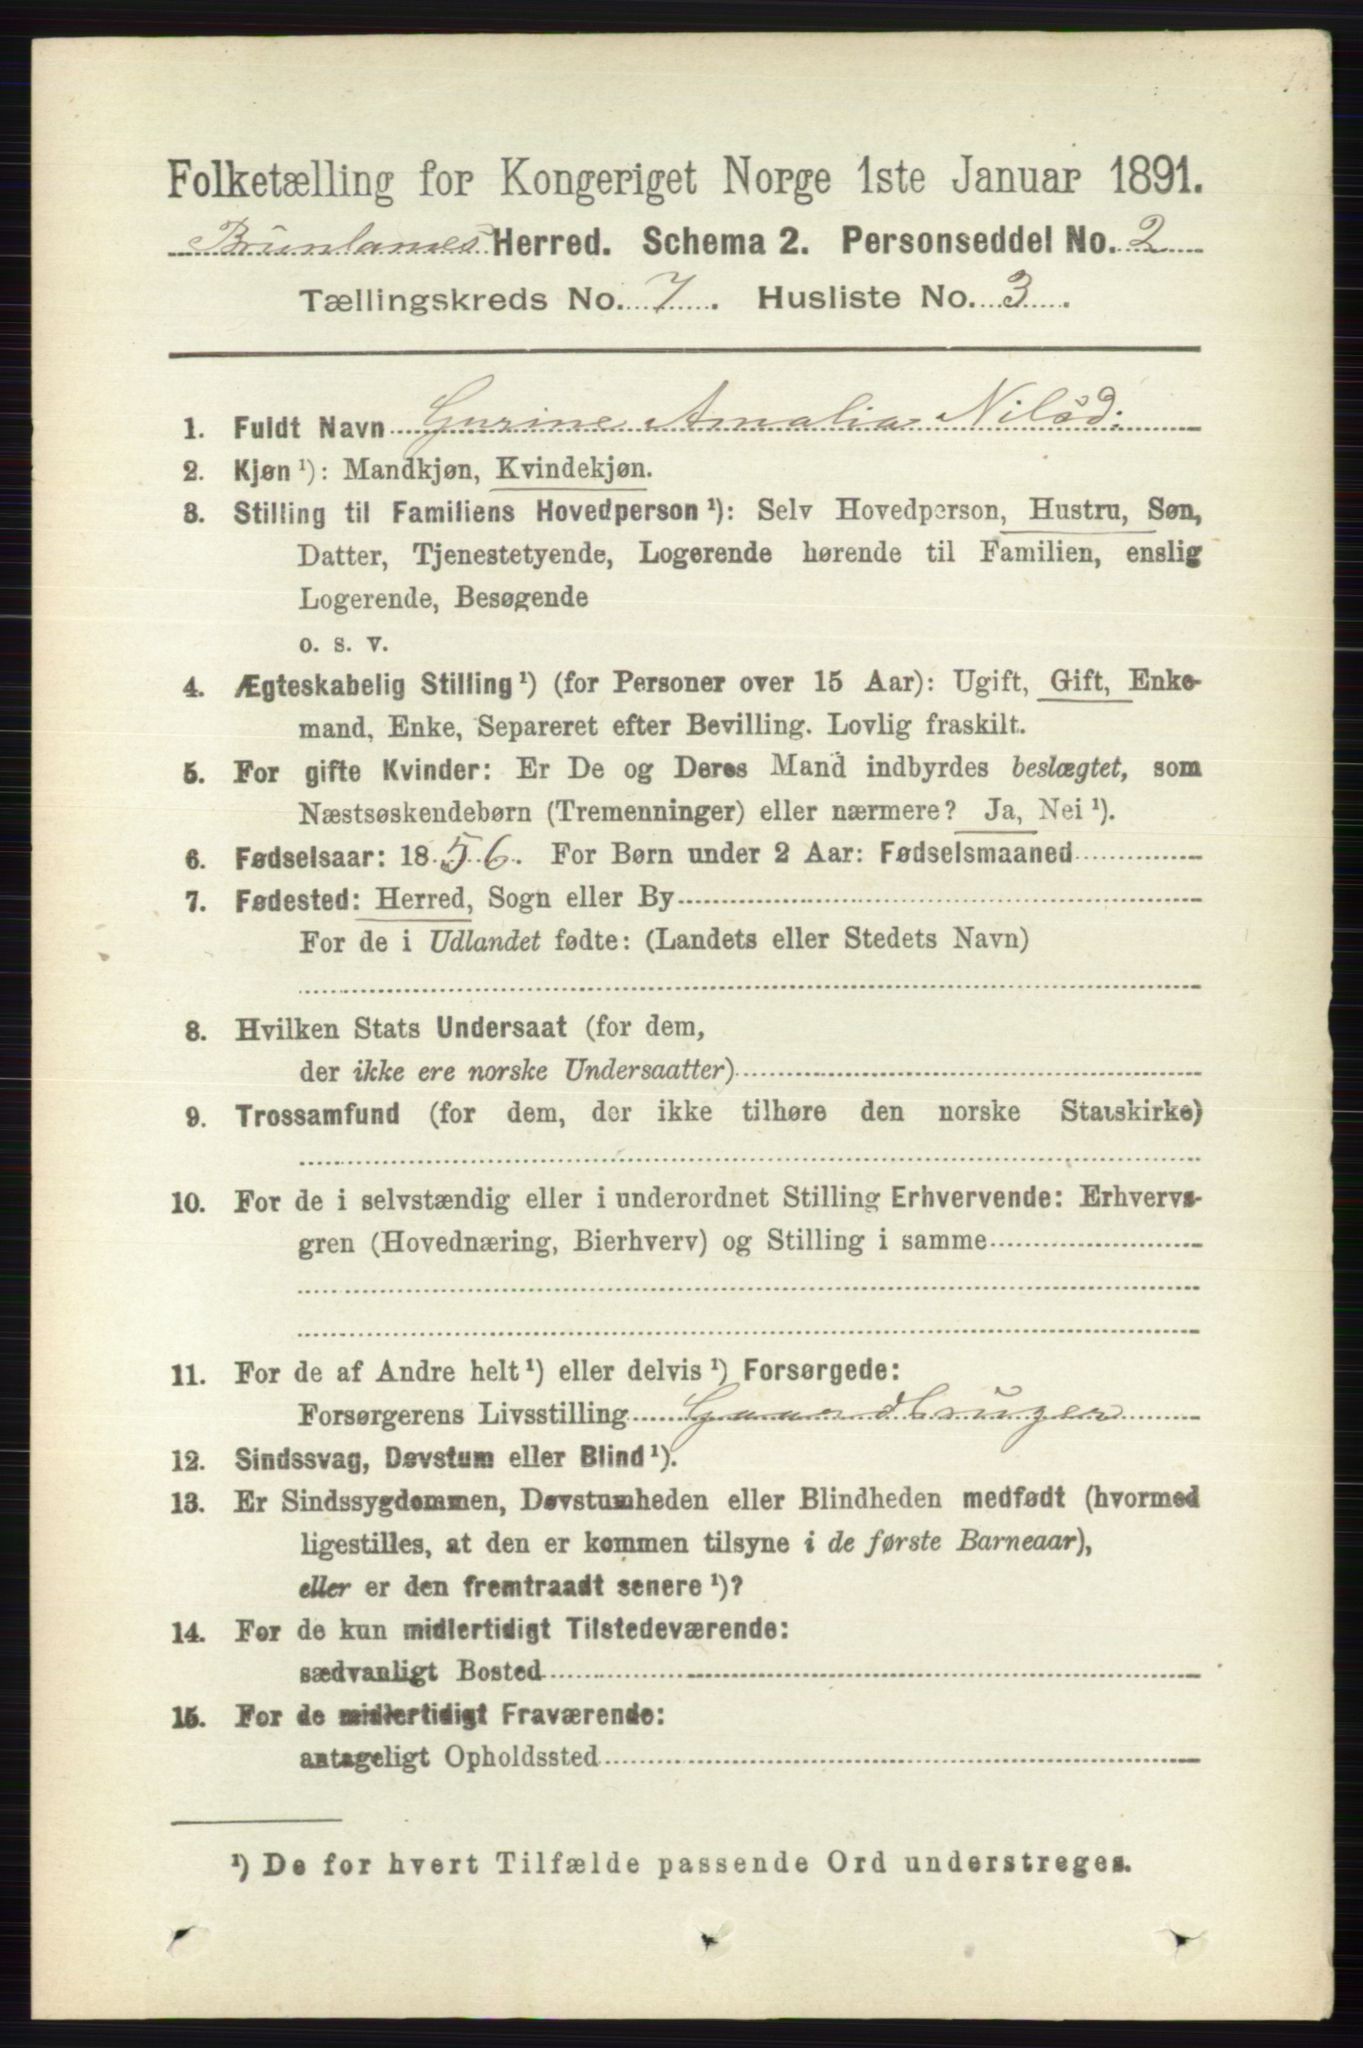 Folketælling for Kongeriget Norge 1ste Januar 1891.
Brunlanes Herred. Schema 2. Personseddel No. 2
Tællingskreds No. 7. Husliste No. 3.
1. Fuldt Navn Gurine Amalia Nilsd:
2. Kjøn ¹): Mandkjøn, Kvindekjøn.
3. Stilling til Familiens Hovedperson ¹): Selv Hovedperson, Hustru, Søn,
Datter, Tjenestetyende, Logerende hørende til Familien, enslig
Logerende, Besøgende
o. s. v.
4. Ægteskabelig Stilling ¹) (for Personer over 15 Aar): Ugift, Gift, Enke-
mand, Enke, Separeret efter Bevilling. Lovlig fraskilt.
5. For gifte Kvinder: Er De og Deres Mand indbyrdes beslægtet, som
Næstsøskendebørn (Tremenninger) eller nærmere? Ja, Nei ¹).
6. Fødselsaar: 1856. For Børn under 2 Aar: Fødselsmaaned
7. Fødested: Herred, Sogn eller By
For de i Udlandet fødte: (Landets eller Stedets Navn)
8. Hvilken Stats Undersaat (for dem,
der ikke ere norske Undersaatter)
9. Trossamfund (for dem, der ikke tilhøre den norske Statskirke)
10. For de i selvstændig eller i underordnet Stilling Erhvervende: Erhvervs-
gren (Hovednæring, Bierhverv) og Stilling i samme
11. For de af Andre helt ¹) eller delvis ¹) Forsørgede:
Forsørgerens Livsstilling Gaardbruger
12. Sindssvag, Døvstum eller Blind ¹).
13. Er Sindssygdommen, Døvstumheden eller Blindheden medfødt (hvormed
ligestilles, at den er kommen tilsyne i de første Barneaar),
eller er den fremtraadt senere ¹)?
14. For de kun midlertidigt Tilstedeværende:
sædvanligt Bosted
15. For de midlertidigt Fraværende:
antageligt Opholdssted
¹) De for hvert Tilfælde passende Ord understreges.